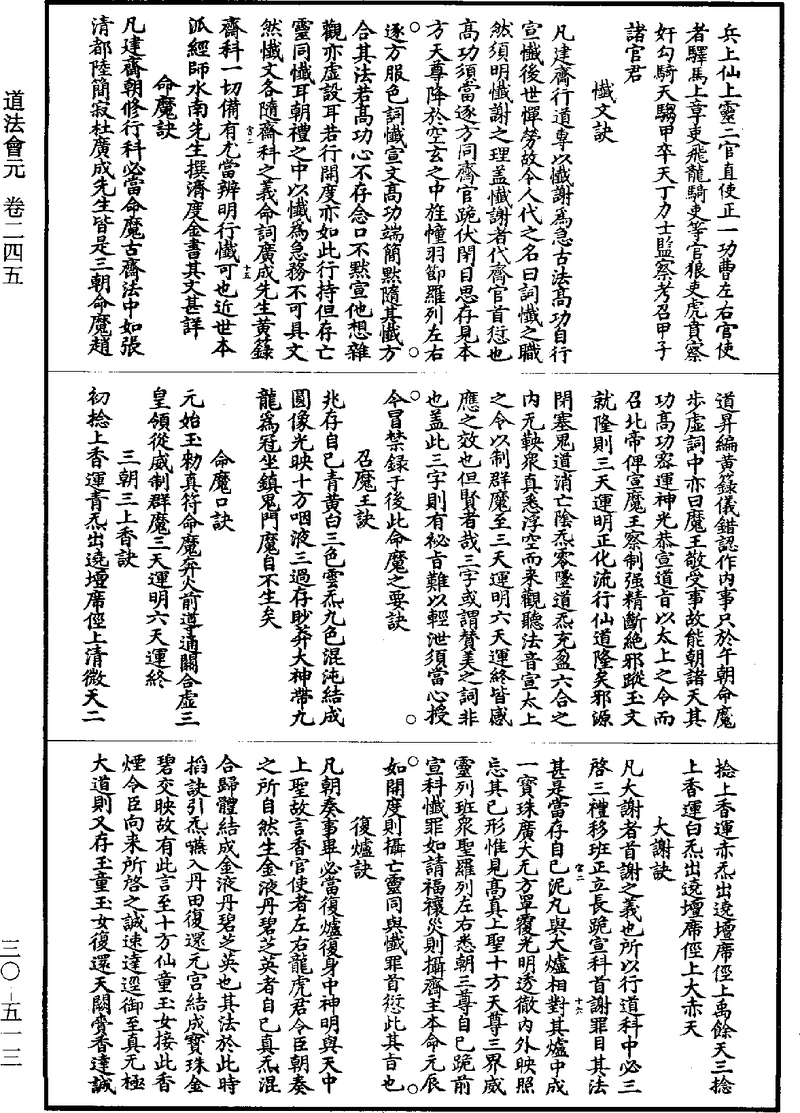 道法會元 卷二四五
三〇-五一三
兵上仙上靈二官直使正一功曹左右官使
者驛馬上章吏飛龍騎吏等官狼吏虎賁察
奸勾騎天騶甲卒天丁力士監察考召甲子
諸官君
懺文訣
凡建齋行道專以懺謝為急古法高功自行
宣懺後世憚勞故令人代之名曰詞懺之職
然須明懺謝之理蓋懺謝者代齋官首愆也
高功須當逐方同齋官跪伏閉目思存見本
方天尊降於空玄之中旌幢羽節羅列左右
逐方服色詞懺宣文高功端簡默隨其懺方
合其法若高功心不存念口不默宣他想雜
觀亦虛設耳若行開度亦如此行持但存亡
靈同懺耳朝禮之中以懺為急務不可具文
然懺文各隨齋科之義命詞廣成先生黃籙
齋科一切備有尤當辨明行懺可也近世本
派經師水南先生撰濟度金書其文甚詳
命魔訣
凡建齋朝修行科必當命魔古齋法中如張
清都陸簡寂杜廣成先生皆是三朝命魔趙
道昇編黃籙儀錯認作內事只於午朝命魔
步虛詞中亦曰魔王敬受事故能朝諸天其
功高功密運神光恭宣道旨以太上之令而
召北帝俾宣魔王察制强精斷絕邪蹤玉文
就隆則三天運明正化流行仙道隆矣邪源
閉塞鬼道消亡陰炁零墜道炁充盈六合之
內无鞅眾真悉浮空而來觀聽法音宣太上
之令以制群魔至三天運明六天運終皆感
應之效也但賢者哉三字或謂贊美之詞非
也蓋此三字則有祕旨難以輕泄須當心授
今冒禁錄于後此命魔之要訣
召魔王訣
兆存自己青黃白三色雲炁九色混沌結成
圓像光映十方咽液三過存眇莽大神帶九
龍為冠坐鎮鬼門魔自不生矣
命魔口訣
元始玉勑真符命魔莽火前導通闢合虛三
皇領從威制群魔三天運明六天運終
三朝三上香訣
初捻上香運青炁出遶壇席徑上清微天二
捻上香運赤炁出遶壇席徑上禹餘天三捻
上香運白炁出遶壇席徑上大赤天
大謝訣
凡大謝者首謝之義也所以行道科中必三
啓三禮移班正立長跪宣科首謝罪目其法
甚是當存自己泥丸與大爐相對其爐中成
一寶珠廣大无方罩覆光明透徹內外映照
忘其己形惟見高真上聖十方天尊三界威
靈列班眾聖羅列左右悉朝三尊自己跪前
宣科懺罪如請福禳災則攝齋主本命元辰
如開度則攝亡靈同與懺罪首愆此其旨也
復爐訣
凡朝奏事畢必當復爐復身中神明與天中
上聖故言香官使者左右龍虎君令臣朝奏
之所自然生金液丹碧芝英者自己真炁混
合歸體結成金液丹碧芝英也其法於此時
搯訣引炁嚥入丹田復還元宮結成寶珠金
碧交映故有此言至十方仙童玉女接此香
煙令臣向來所啓之誠速達逕御至真无極
大道則又存玉童玉女復還天闕賫香達誠